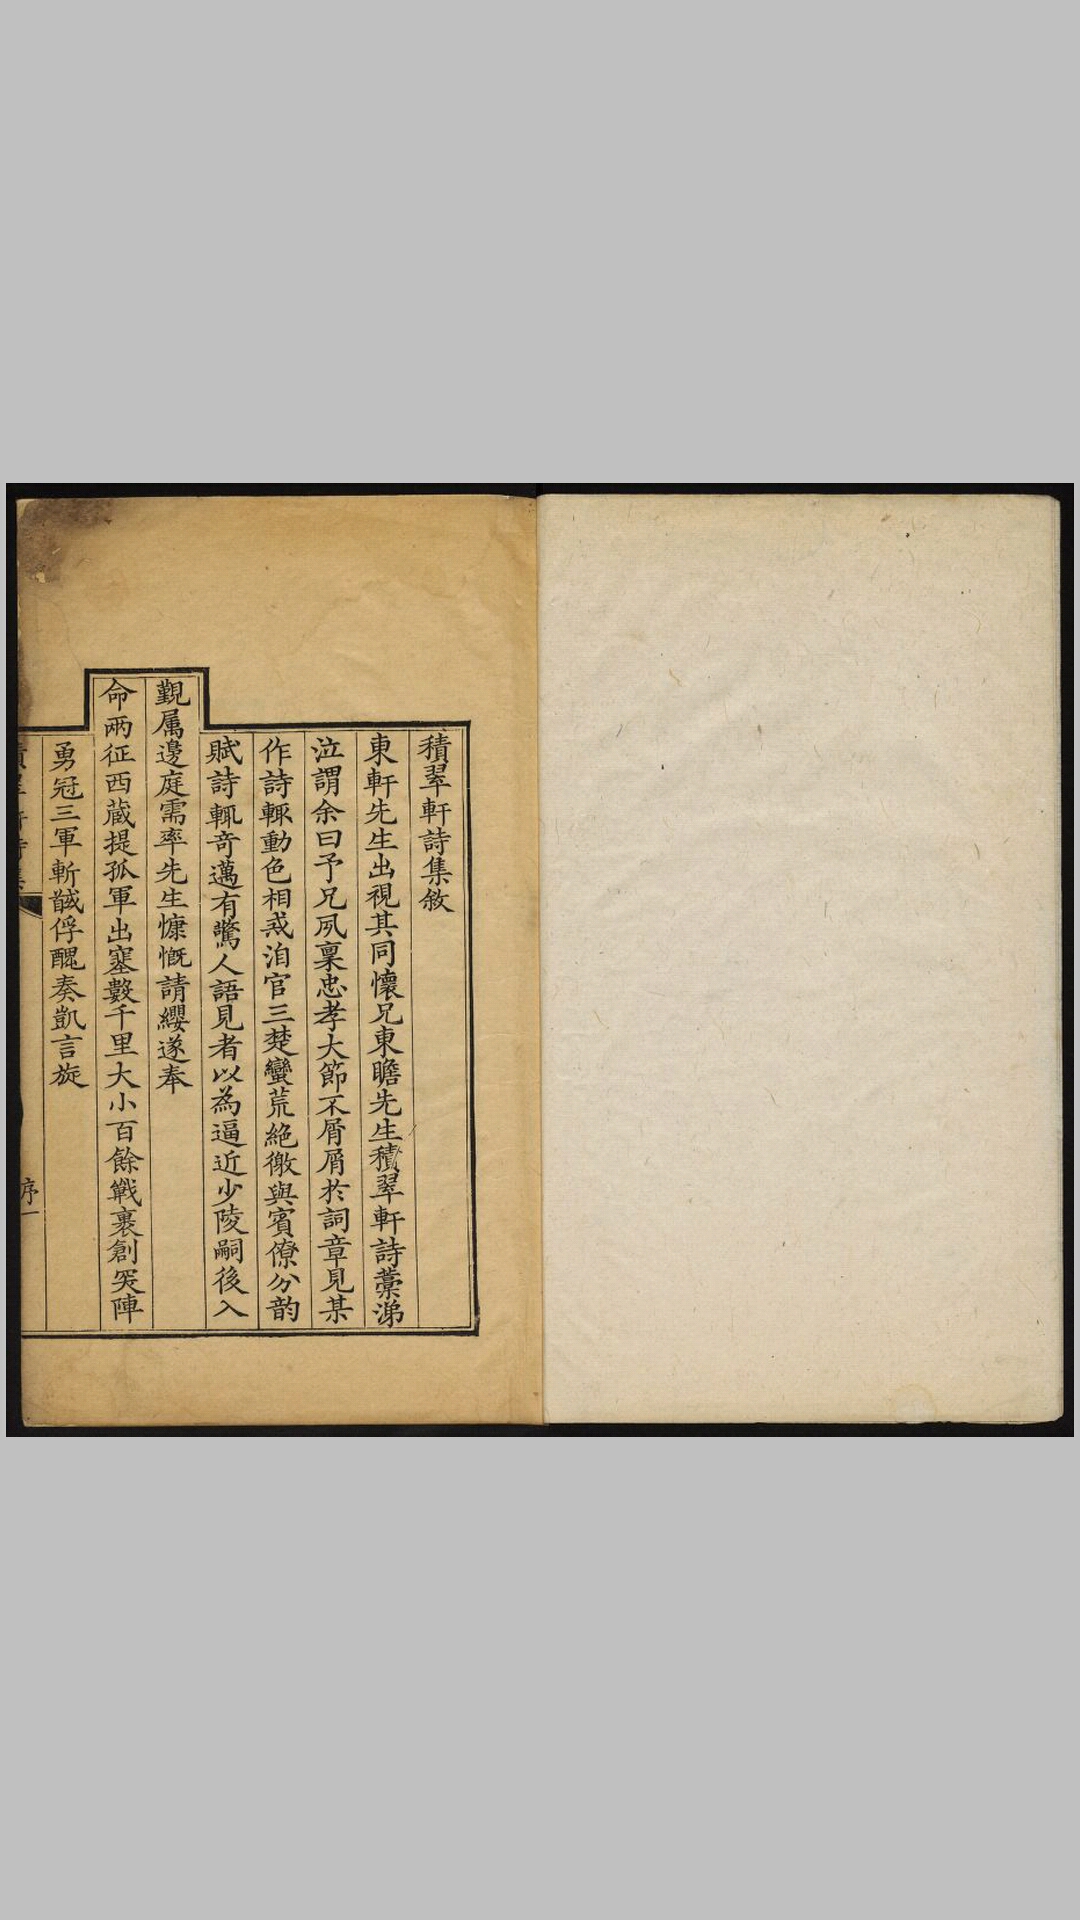 積翠軒詩集敘
東軒先生出視其同懷兄東瞻先生積翠軒詩藁涕
泣謂余曰予兄夙稟忠孝大節不屑屑於詞章見某
作詩輒動色相戒洎官三楚蠻荒絶徼與賓僚分韵
賦詩輒奇邁有驚人語見者以為逼近少陵嗣後入
覲属邊庭需率先生慷慨請纓遂奉
命兩征西藏提孤軍出塞數千里大小百餘戰裹創突陣
勇冠三軍斬馘俘醜奏凱言旋
序一